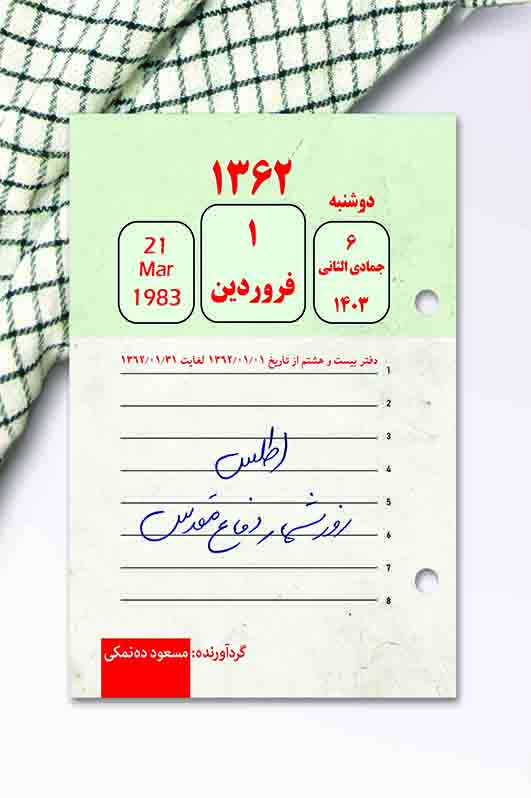 ۱۳۶۲
دوشنبه
۶
جمادی الثانی
۱۴۰۳
۱
فروردین
21
Mar
1983
دفتر بیست و هشتم از تاریخ ۱۳۶۲/۰۱/۰۱ لغایت ۱۳۶۲/۰۱/۳۱
1
2
3
اطلس
4
5
روزشمار دفاع مقدس
6
7
8
گردآورنده: مسعود ده‌نمکی